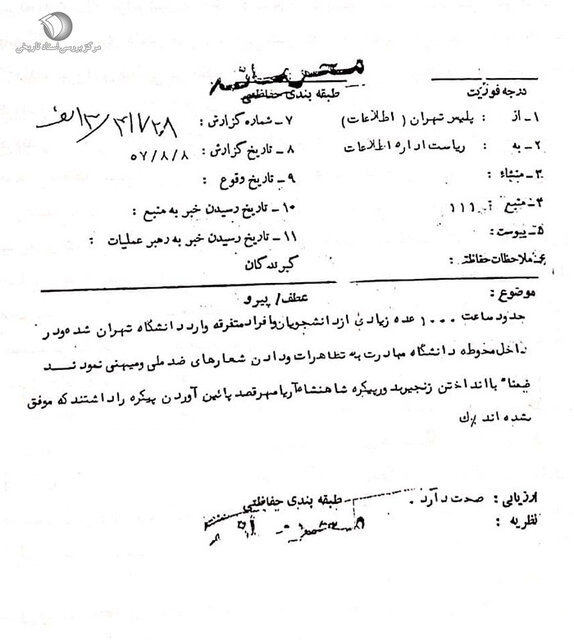 مرکز بررسی اسناد تاریخی
محرمانه
درجه فوریت طبقه بندی حفاظتی
۱ـ از : پلیس تهران ( اطلاعات ) ۷ ـ شماره گزارش :
۲ـ به : ریاست اداره اطلاعات ۸ ـ تاریخ گزارش : ۵۷/۸/۸
۳ـ منشاء : ۹ ـ تاریخ وقوع :
۴ـ منبع : ۱۱۱ ۱۰ ـ تاریخ رسیدن خبر به منبع :
۵ـ پیوست : ۱۱ ـ تاریخ رسیدن خبر به رهبر عملیات :
۶ـ ملاحظات حفاظتی : گیرندگان
موضوع : عطف / پیرو
حدود ساعت ۱۰۰۰ عده زیادی از دانشجویان و افراد متفرقه وارد دانشگاه تهران شده و در
داخل محوطه دانشگاه مبادرت به تظاهرات و دادن شعارهای ضد ملی و میهنی نمودند
ضمنا" با انداختن زنجیر بدور پیکره شاهنشاه آریامهر قصد پائین آوردن پیکره را داشتند که موفق
نشده اند
ارزیابی : صحت دارد . طبقه بندی حفاظتی
نظریه :